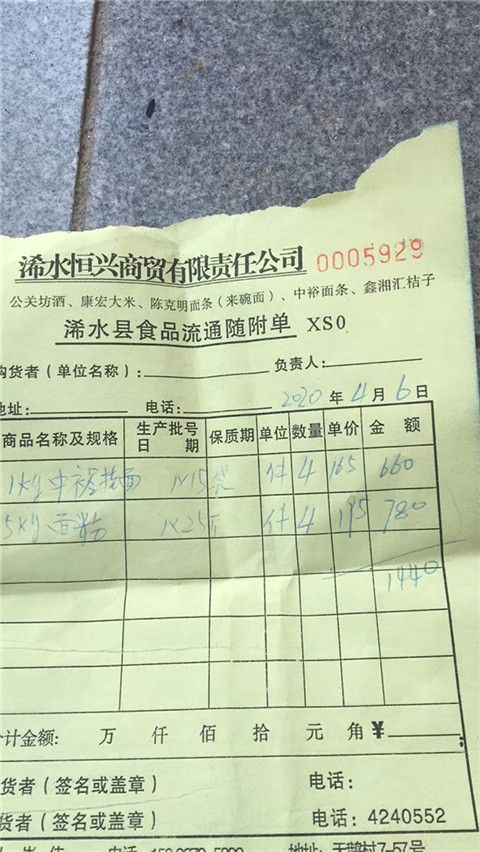 浠水恒兴商贸有限责任公司 0005929
公关坊酒、康宏大米、陈克明面条(来碗面)、中裕面条、鑫湘汇桔子
浠水县食品流通随附单 XS0
购货者(单位名称): 负责人:
地址: 电话: 2020 年 4 月 6 日
商品名称及规格 生产批号日期 保质期 单位 数量 单价 金额
1kg中裕挂面 1×15袋 件 4 165 660
5kg面粉 1×25 件 4 195 780
1440
计金额: 万 仟 佰 拾 元 角 ¥
货者(签名或盖章) 电话:
货者(签名或盖章) 电话: 4240552
地址: 天鹅村7-57号